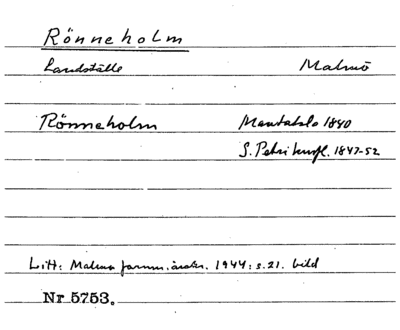 Rönneholm
Landställe Malmö
Rönneholm Mantalsl. 1840
S. Petri husfl. 1847-52
Litt: Malmö fornm. årsskr. 1944: s. 21. bild
Nr 5753.